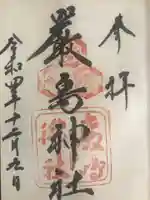 奉拝
厳島神社
令和四年十二月九日